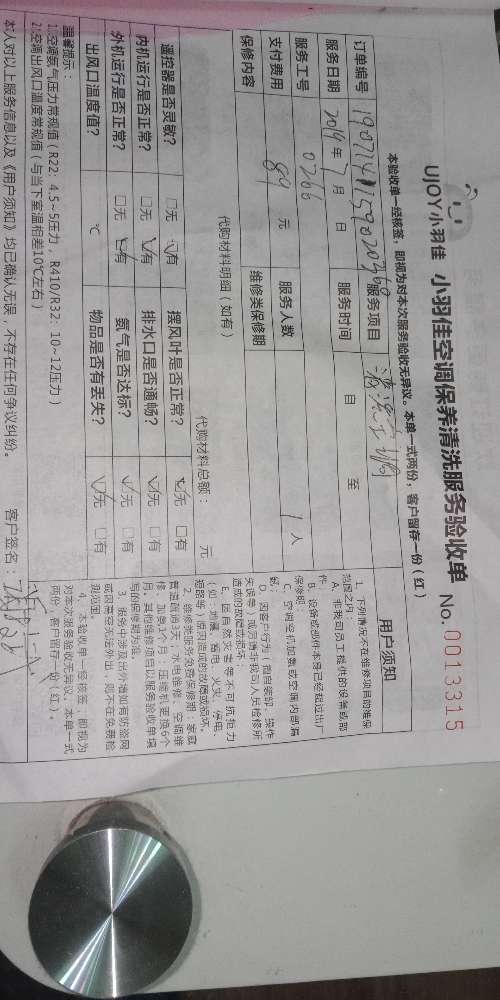 UJOY小羽佳 小羽佳空调保养清洗服务验收单 No. 0013315
本验收单一经核签，即视为对本次服务验收无异议。本单一式两份，客户留存一份（红）
订单编号 服务项目 清洗空调
服务日期 2019年7月 日 服务时间 自 至
服务工号 0266
支付费用 89 元 服务人数 1 人
保修内容 维修类保修期
代购材料明细（如有） 代购材料总额： 元
遥控器是否灵敏？ □无 ☑有 摆风叶是否正常？ ☑无 □有
内机运行是否正常？ □无 ☑有 排水口是否通畅？ ☑无 □有
外机运行是否正常？ □无 ☑有 氨气是否达标？ ☑无 □有
出风口温度值？ ℃ 物品是否有丢失？ ☑无 □有
温馨提示：
1).空调氨气压力常规值（R22：4.5~5压力，R410/R32：10~12压力）
2).空调出风口温度常规值（与当下室温相差10℃左右）
本人对以上服务信息以及《用户须知》均已确认无误，不存在任何争议纠纷。 客户签名：
用户须知
1、下列情况不在维修项目的维保
范围之内：
A、非我司员工提供的设备或部
件；
B、设备或部件本身已经超过出厂
保修期；
C、空调空机加氨或空调内部漏
氨；
D、因客户行为（擅自装卸、操作
失误等）或同意非我司人员检修所
造成的故障或损坏；
E、因自然灾害等不可抗拒力
（如：地震、雷电、火灾、停电、
短路等）原因造成的故障或损坏。
2、维修类服务免费保修期：家庭
管道疏通3天；水电维修、空调维
修、加氨3个月；压缩机更换6个
月；其他维修项目以服务验收单填
写的保修期为准。
3、服务中涉及出外墙如有防盗网
或因高空无法外出，则不在免费检
测范围。
4、本验收单一经核签，即视为
对本次服务验收无异议。本单一式
两份，客户留存一份（红）。